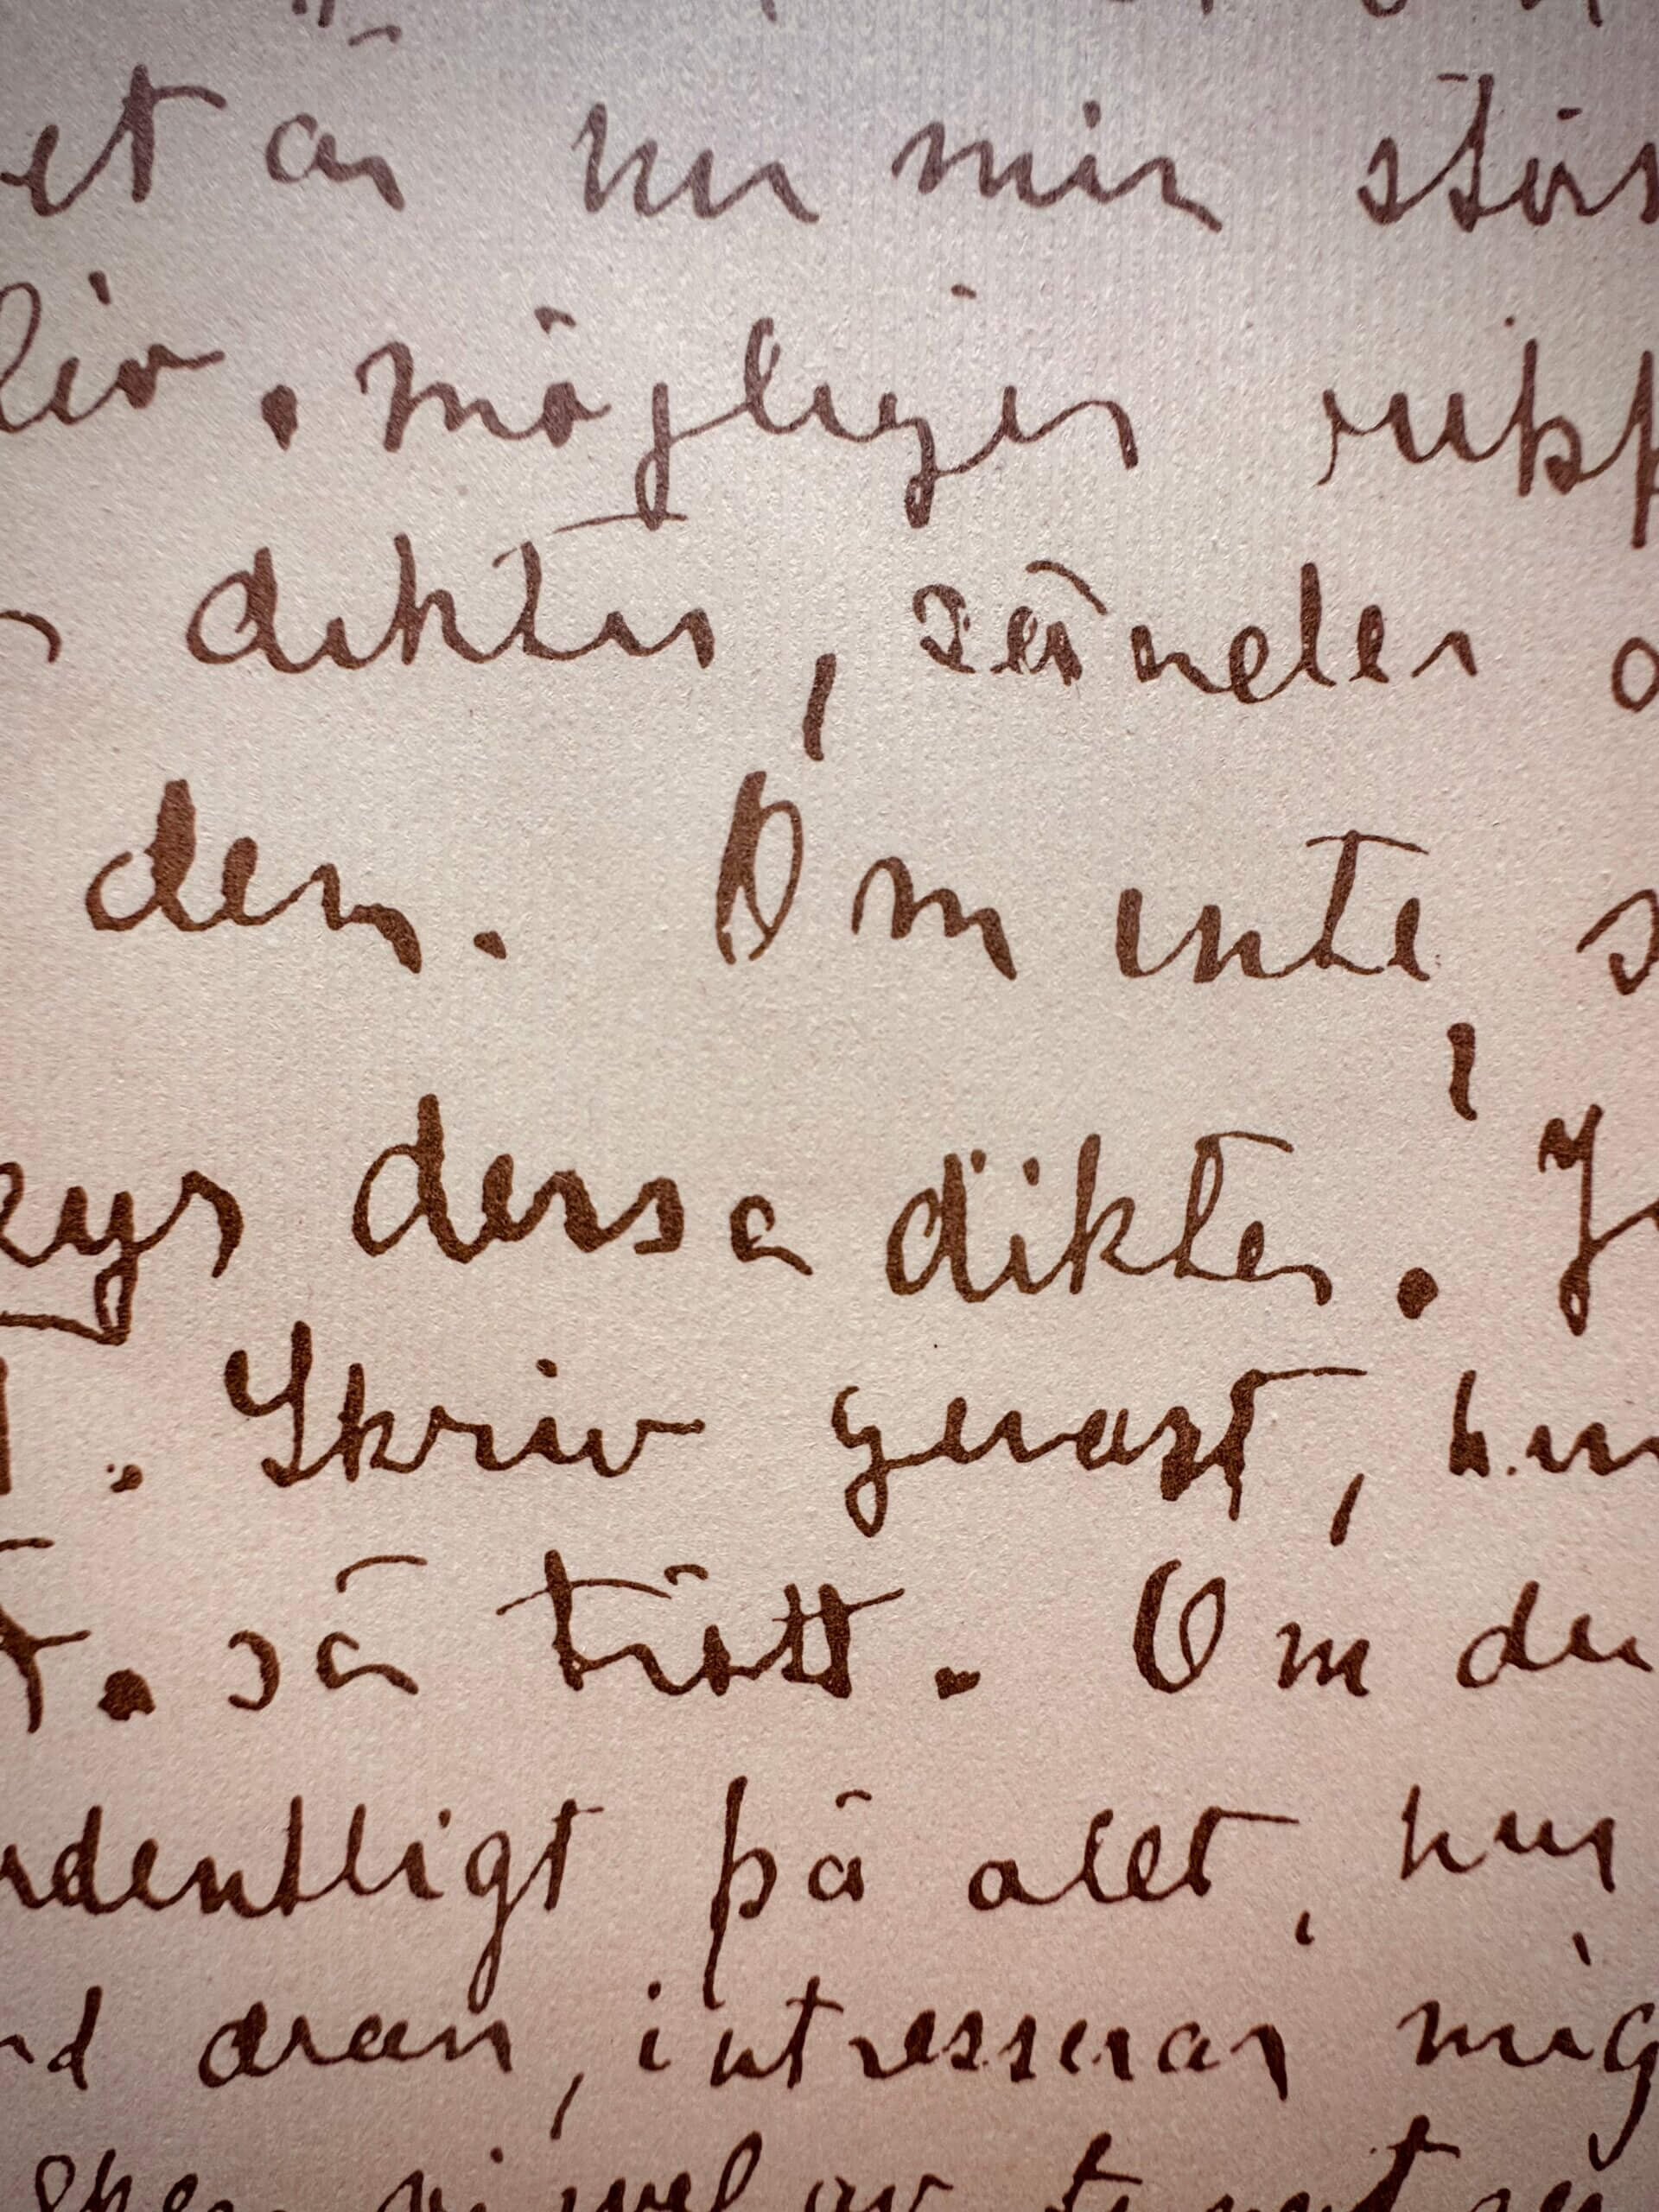 et är nu min störs
liv. möjligen rukk
dikter, sänder
dem. Om inte, s
dessa dikter. J
. Skriv genast, hur
. så trött. Om du
rdentligt på allt, hur
dran, intresserar mig